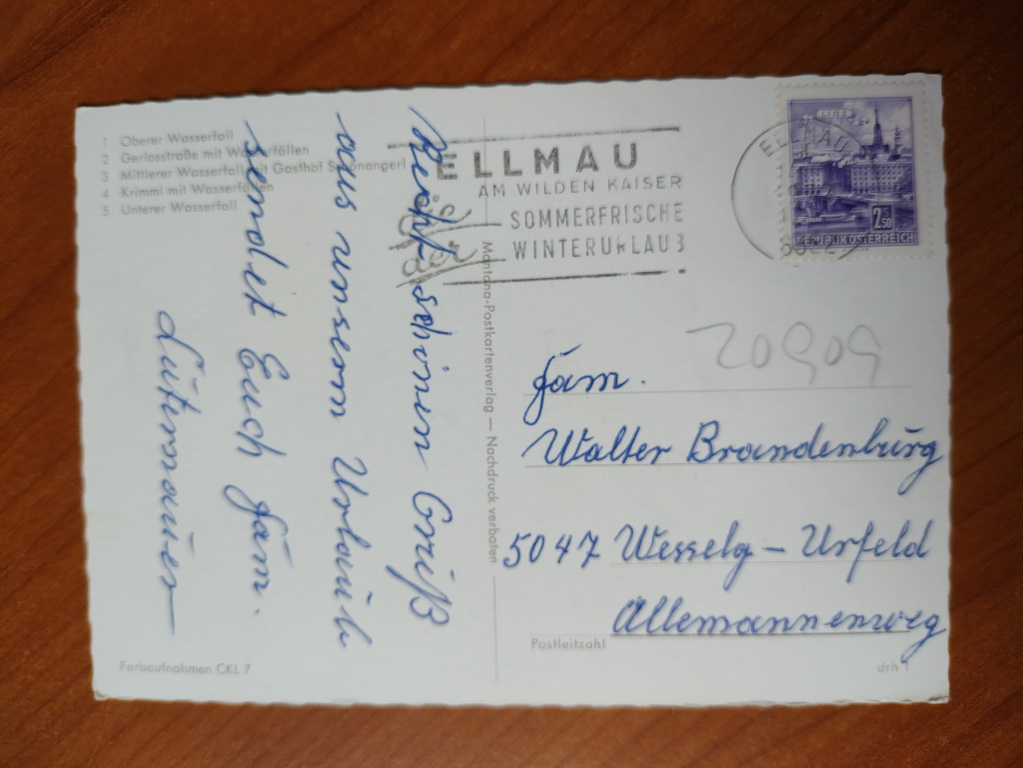 1 Oberer Wasserfall
2 Gerlosstraße mit Wasserfällen
3 Mittlerer Wasserfall mit Gasthof Schönangerl
4 Krimml mit Wasserfällen
5 Unterer Wasserfall
Recht schönen Gruß
aus unserm Urlaub
sendet Euch Fam.
Farbaufnahmen CKL 7
Montana-Postkartenverlag — Nachdruck verboten
ELLMAU
AM WILDEN KAISER
SOMMERFRISCHE
WINTERURLAUB
ELLMAU
LINZ
2.50
REPUBLIK ÖSTERREICH
20909
Fam.
Walter Brandenburg
5047 Wesselg - Urfeld
Allemannenweg
Postleitzahl
drh 1